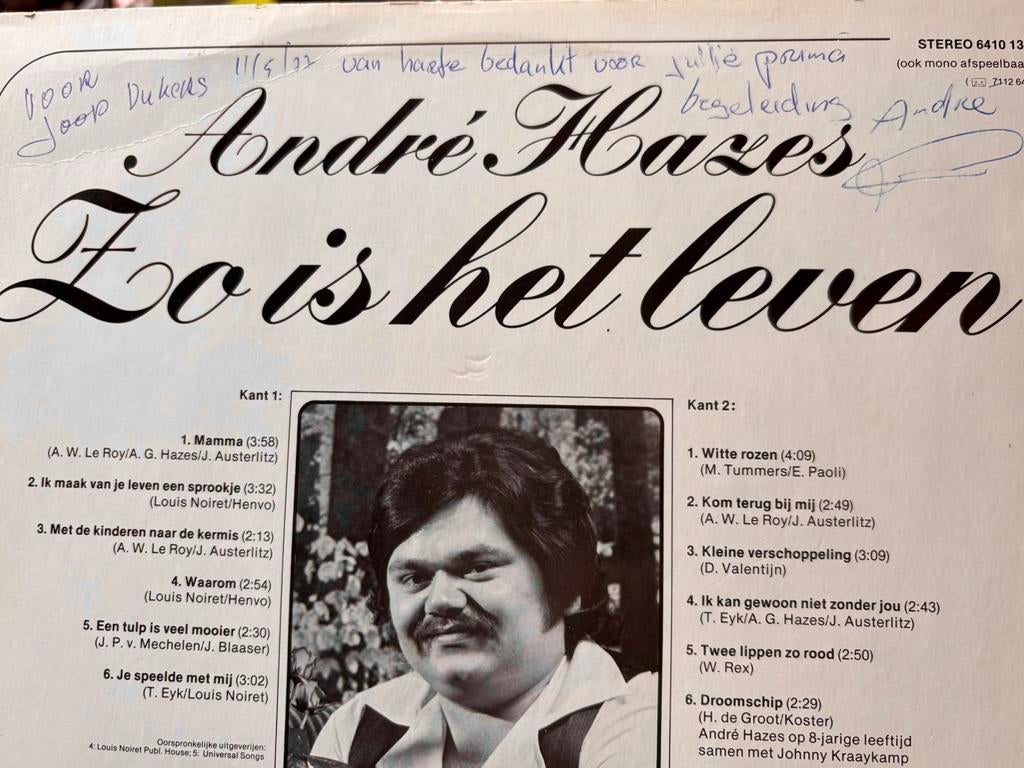 voor
Joop Dukens
11/5/77 van harte bedankt voor jullie prima
begeleiding Andre
STEREO 6410 13
(ook mono afspeelbaa
7112 64
André Hazes
Zo is het leven
Kant 1:
1. Mamma (3:58)
(A. W. Le Roy/A. G. Hazes/J. Austerlitz)
2. Ik maak van je leven een sprookje (3:32)
(Louis Noiret/Henvo)
3. Met de kinderen naar de kermis (2:13)
(A. W. Le Roy/J. Austerlitz)
4. Waarom (2:54)
(Louis Noiret/Henvo)
5. Een tulp is veel mooier (2:30)
(J. P. v. Mechelen/J. Blaaser)
6. Je speelde met mij (3:02)
(T. Eyk/Louis Noiret)
Oorspronkelijke uitgeverijen:
4: Louis Noiret Publ. House; 5: Universal Songs
Kant 2:
1. Witte rozen (4:09)
(M. Tummers/E. Paoli)
2. Kom terug bij mij (2:49)
(A. W. Le Roy/J. Austerlitz)
3. Kleine verschoppeling (3:09)
(D. Valentijn)
4. Ik kan gewoon niet zonder jou (2:43)
(T. Eyk/A. G. Hazes/J. Austerlitz)
5. Twee lippen zo rood (2:50)
(W. Rex)
6. Droomschip (2:29)
(H. de Groot/Koster)
André Hazes op 8-jarige leeftijd
samen met Johnny Kraaykamp